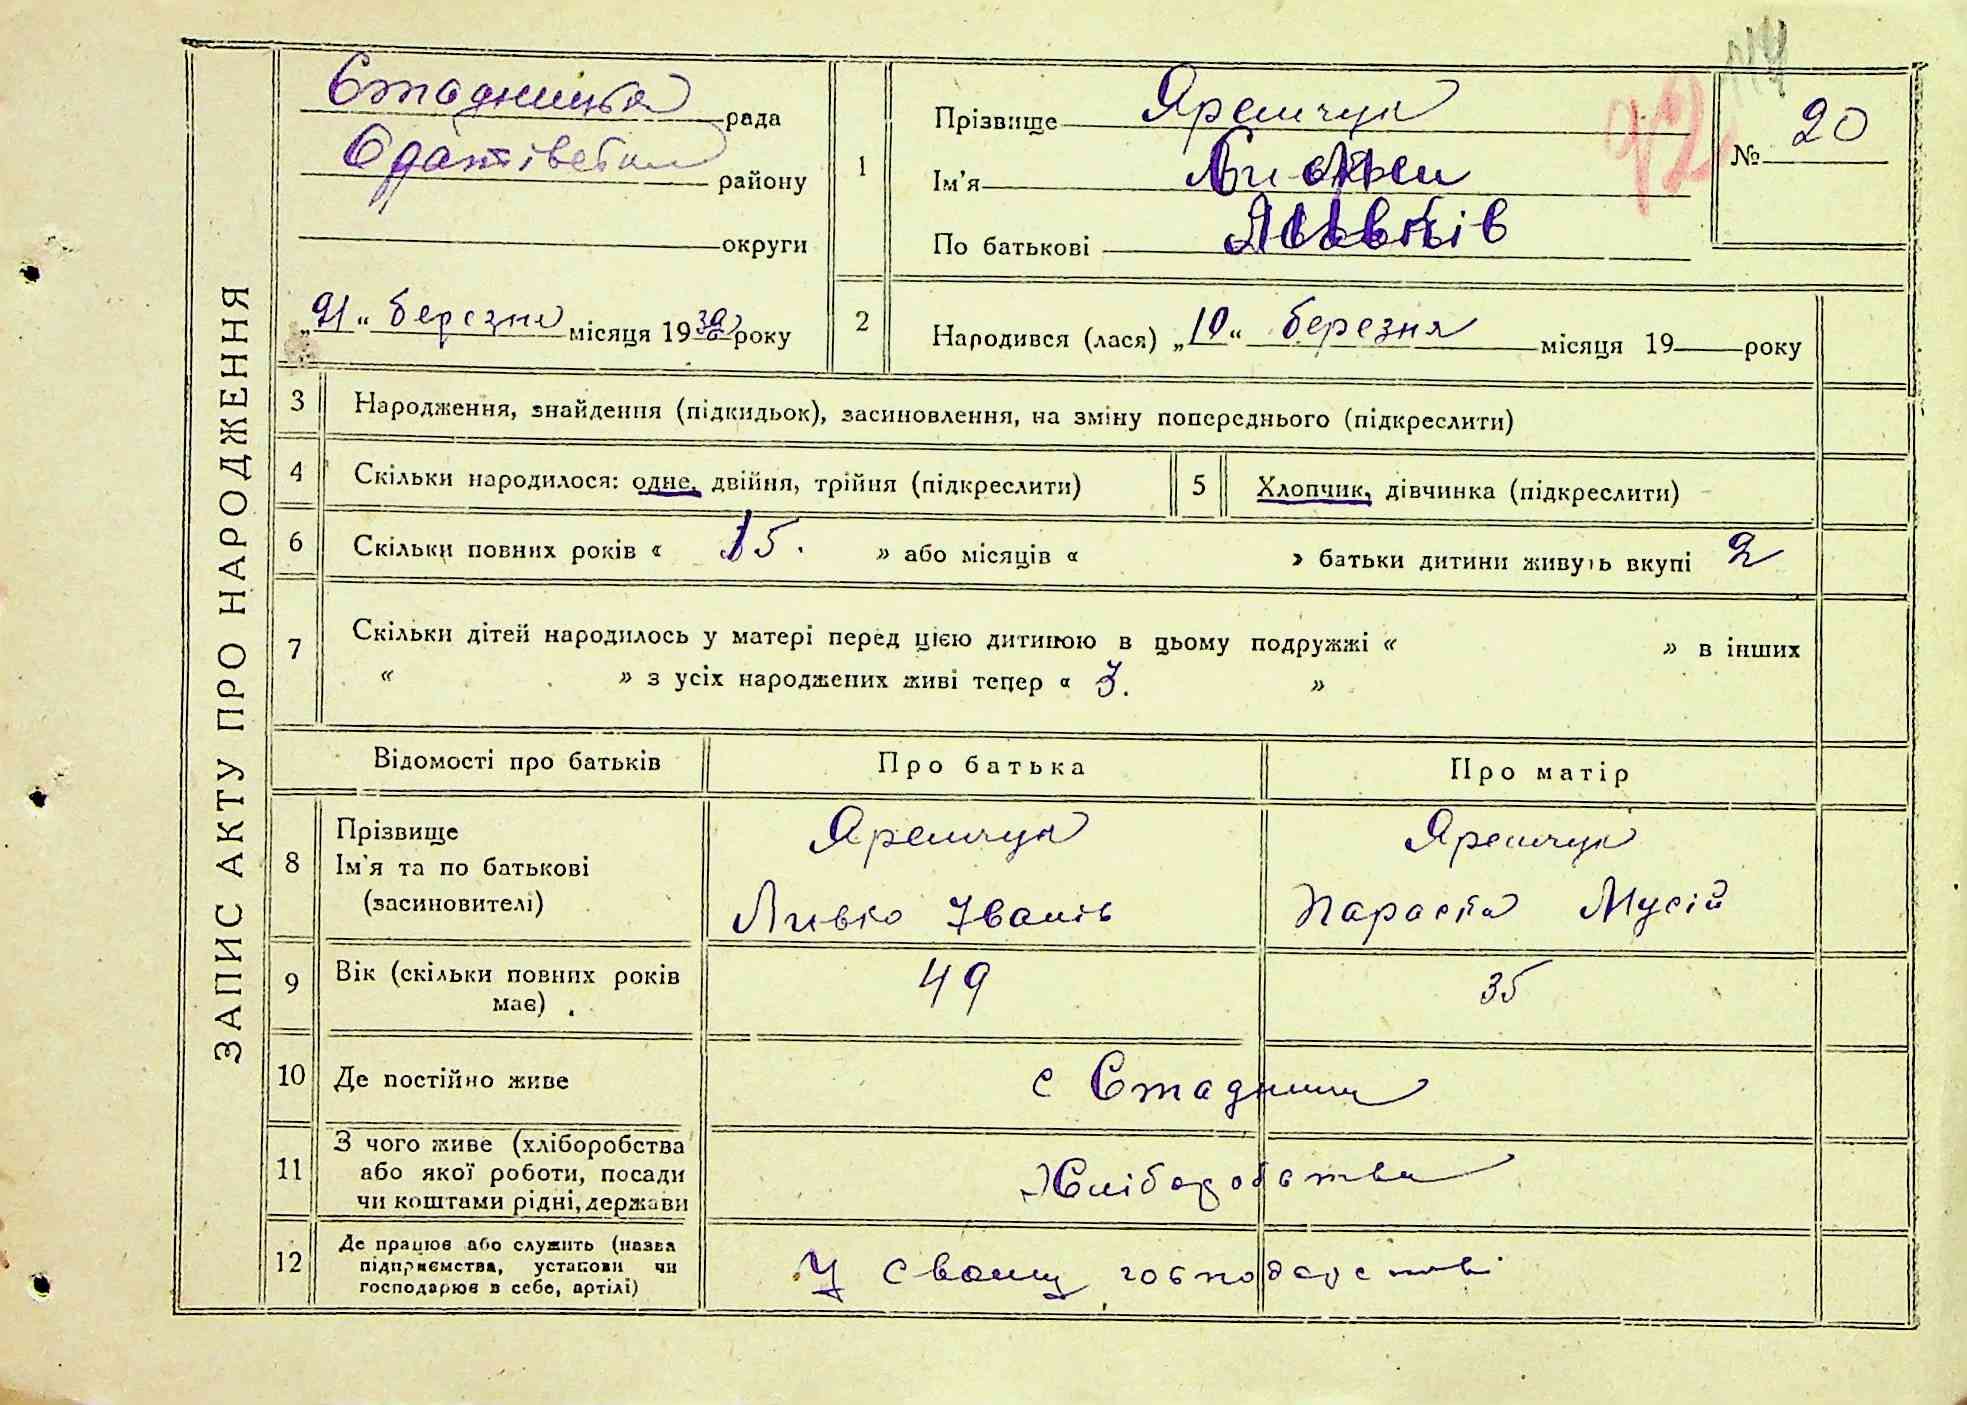 ЗАПИС АКТУ ПРО НАРОДЖЕННЯ
Стадницька рада
Оратівського району
округи
„21“ березня місяця 1930 року
1
Прізвище Яремчук
Ім'я
По батькові
№ 20
2
Народився (лася) „10“ березня місяця 19 року
3 Народження, знайдення (підкидьок), засиновлення, на зміну попереднього (підкреслити)
4 Скільки народилося: одне, двійня, трійня (підкреслити)
5 Хлопчик, дівчинка (підкреслити)
6 Скільки повних років « 15. » або місяців « » батьки дитини живуть вкупі 2
7 Скільки дітей народилось у матері перед цією дитиною в цьому подружжі « » в інших
« » з усіх народжених живі тепер « 3. »
Відомості про батьків Про батька Про матір
8 Прізвище Яремчук Яремчук
Ім'я та по батькові
(засиновителі) Ливко Іванів Параска Мусій
9 Вік (скільки повних років
має) 49 35
10 Де постійно живе с Стадниця
11 З чого живе (хліборобства
або якої роботи, посади
чи коштами рідні, держави
Хліборобства
12 Де працює або служить (назва
підприємства, установи чи
господарює в себе, артілі)
У своему господарстві